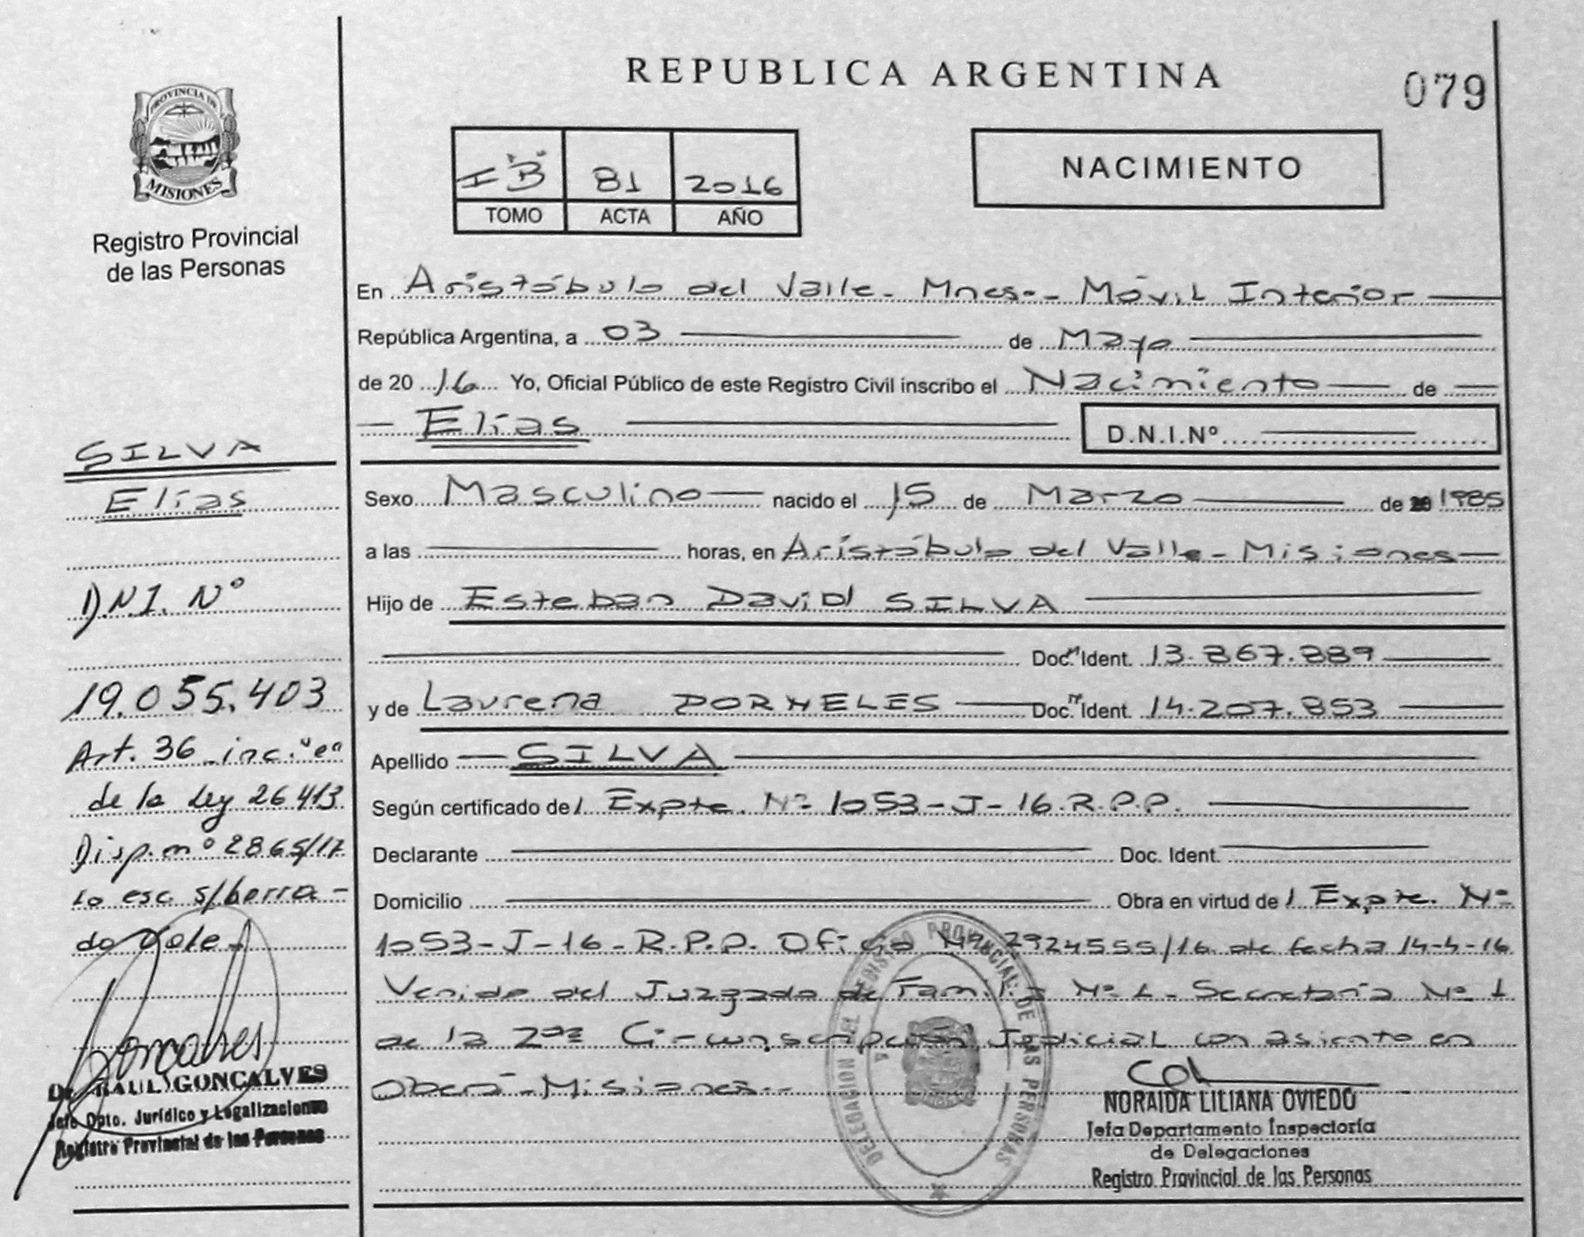 REPUBLICA ARGENTINA
079
PROVINCIA DE
MISIONES
Registro Provincial
de las Personas
I "B" 81 2016
TOMO ACTA AÑO
NACIMIENTO
En Aristóbulo del Valle - Mnes - Móvil Interior
República Argentina, a 03 de Mayo
de 2016 Yo, Oficial Público de este Registro Civil inscribo el Nacimiento de
Elías D.N.I.Nº
Sexo Masculino nacido el 15 de Marzo de 1985
a las horas, en Aristóbulo del Valle - Misiones
Hijo de Esteban David SILVA
Doc. Ident. 13.867.889
y de Laurena DORNELES Doc. Ident. 14.207.853
Apellido SILVA
Según certificado de 1 Expte. Nº 1053-J-16-R.P.P.
Declarante Doc. Ident.
Domicilio Obra en virtud de 1 Expte. Nº
1053-J-16-R.P.P. Oficio Nº 2924555/16 de fecha 14-4-16
Venido del Juzgado de Familia Nº 1 - Secretaría Nº 1
de la 2da Circunscripción Judicial con asiento en
Oberá - Misiones.-
SILVA
Elías
D.N.I. Nº
19.055.403
Art. 36 inc.
de la Ley 26413
Disp. nº 2865/17
Lo esc. s/borra-
do vale.
Goncalves
Dr. RAUL GONCALVES
Jefe Dpto. Jurídico y Legalizaciones
Registro Provincial de las Personas
DELEGACION DEL REGISTRO PROVINCIAL DE LAS PERSONAS
NORAIDA LILIANA OVIEDO
Jefa Departamento Inspectoría
de Delegaciones
Registro Provincial de las Personas